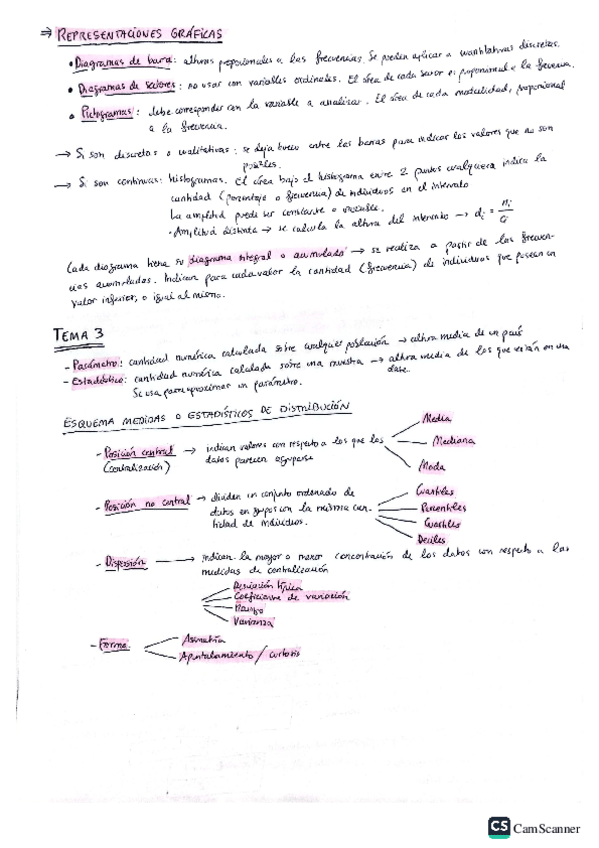 ⇒ REPRESENTACIONES GRÁFICAS
• Diagramas de barra: alturas proporcionales a las frecuencias. Se pueden aplicar a cuantitativas discretas.
• Diagramas de sectores: no usar con variables ordinales. El área de cada sector es proporcional a la frecuencia.
• Pictogramas: debe corresponder con la variable a analizar. El área de cada modalidad, proporcional
a la frecuencia.
→ Si son discretas o cualitativas: se deja hueco entre las barras para indicar los valores que no son
posibles.
→ Si son continuas: histogramas. El área bajo el histograma entre 2 puntos cualquiera indica la
cantidad (porcentaje o frecuencia) de individuos en el intervalo
La amplitud puede ser constante o variable.
· Amplitud distinta → se calcula la altura del intervalo → di = ni/ci
Cada diagrama tiene su diagrama integral o acumulado → se realiza a partir de las frecuen-
cias acumuladas. Indican para cada valor la cantidad (frecuencia) de individuos que poseen un
valor inferior, o igual al mismo.
TEMA 3
- Parámetro: cantidad numérica calculada sobre cualquier población → altura media de un país
- Estadístico: cantidad numérica calculada sobre una muestra → altura media de los que están en una
clase.
Se usa para aproximar un parámetro.
ESQUEMA MEDIDAS O ESTADÍSTICOS DE DISTRIBUCIÓN
- Posición central → indican valores con respecto a los que los
(centralización) datos parecen agruparse
Media
Mediana
Moda
- Posición no central → dividen un conjunto ordenado de
datos en grupos con la misma can-
tidad de individuos.
Cuantiles
Percentiles
Cuartiles
Deciles
- Dispersión → indican la mayor o menor concentración de los datos con respecto a las
medidas de centralización
Desviación típica
Coeficiente de variación
Rango
Varianza
- Forma
Asimetría
Apuntalamiento / curtosis
CS CamScanner